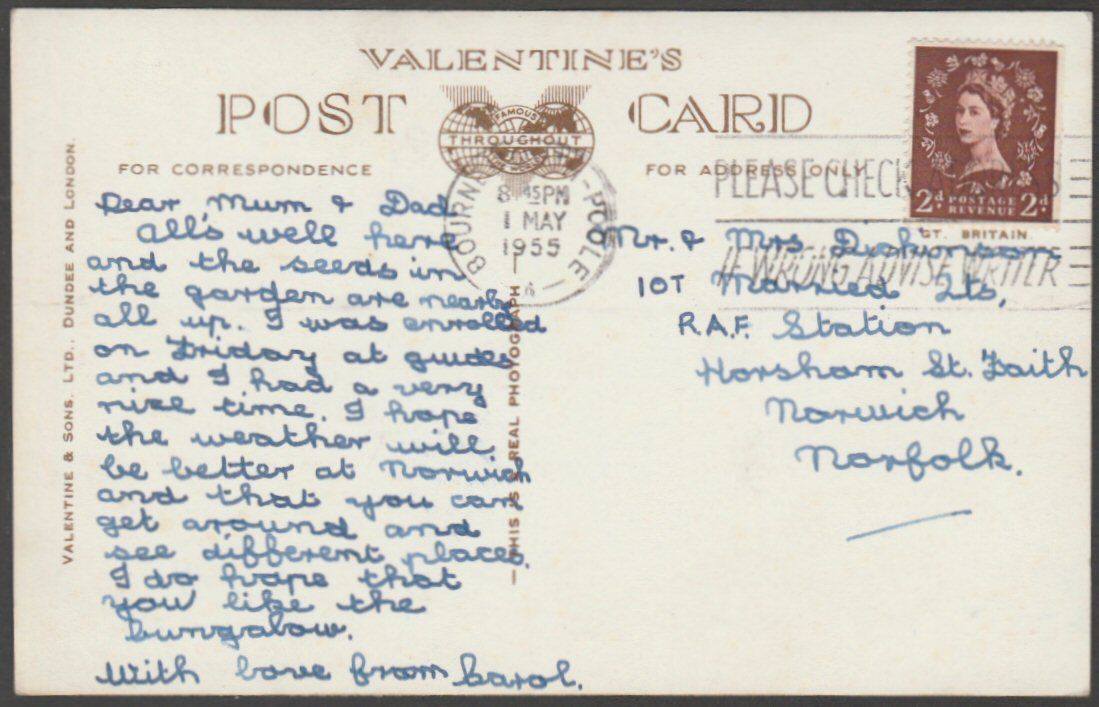 VALENTINE'S
POST CARD
FAMOUS
THROUGHOUT
THE WORLD
FOR CORRESPONDENCE
FOR ADDRESS ONLY
VALENTINE & SONS, LTD., DUNDEE AND LONDON.
THIS IS A REAL PHOTOGRAPH
BOURNE -POOLE
8 45PM
1 MAY
1955
PLEASE CHECK
IF WRONG ADVISE WRITER
2d POSTAGE REVENUE 2d
GT. BRITAIN.
Dear Mum & Dad,
All's well here
and the seeds in
the garden are nearly
all up. I was enrolled
on Friday at guides
and I had a very
nice time. I hope
the weather will
be better at Norwich
and that you can
get around and
see different places.
I do hope that
you like the
bungalow.
With love from Carol.
Mr. & Mrs
10T Married Qts,
R.A.F. Station
Horsham St. Faith
Norwich
Norfolk.